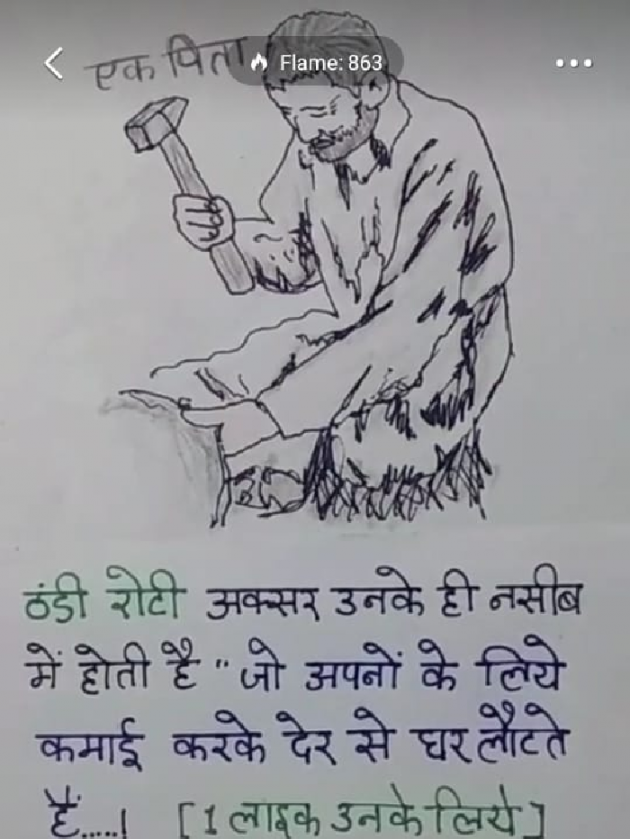 एक पिता
Flame: 863
ठंडी रोटी अक्सर उनके ही नसीब
में होती है "जो अपनों के लिये
कमाई करके देर से घर लौटते
हैं.....! [1 लाइक उनके लिये]